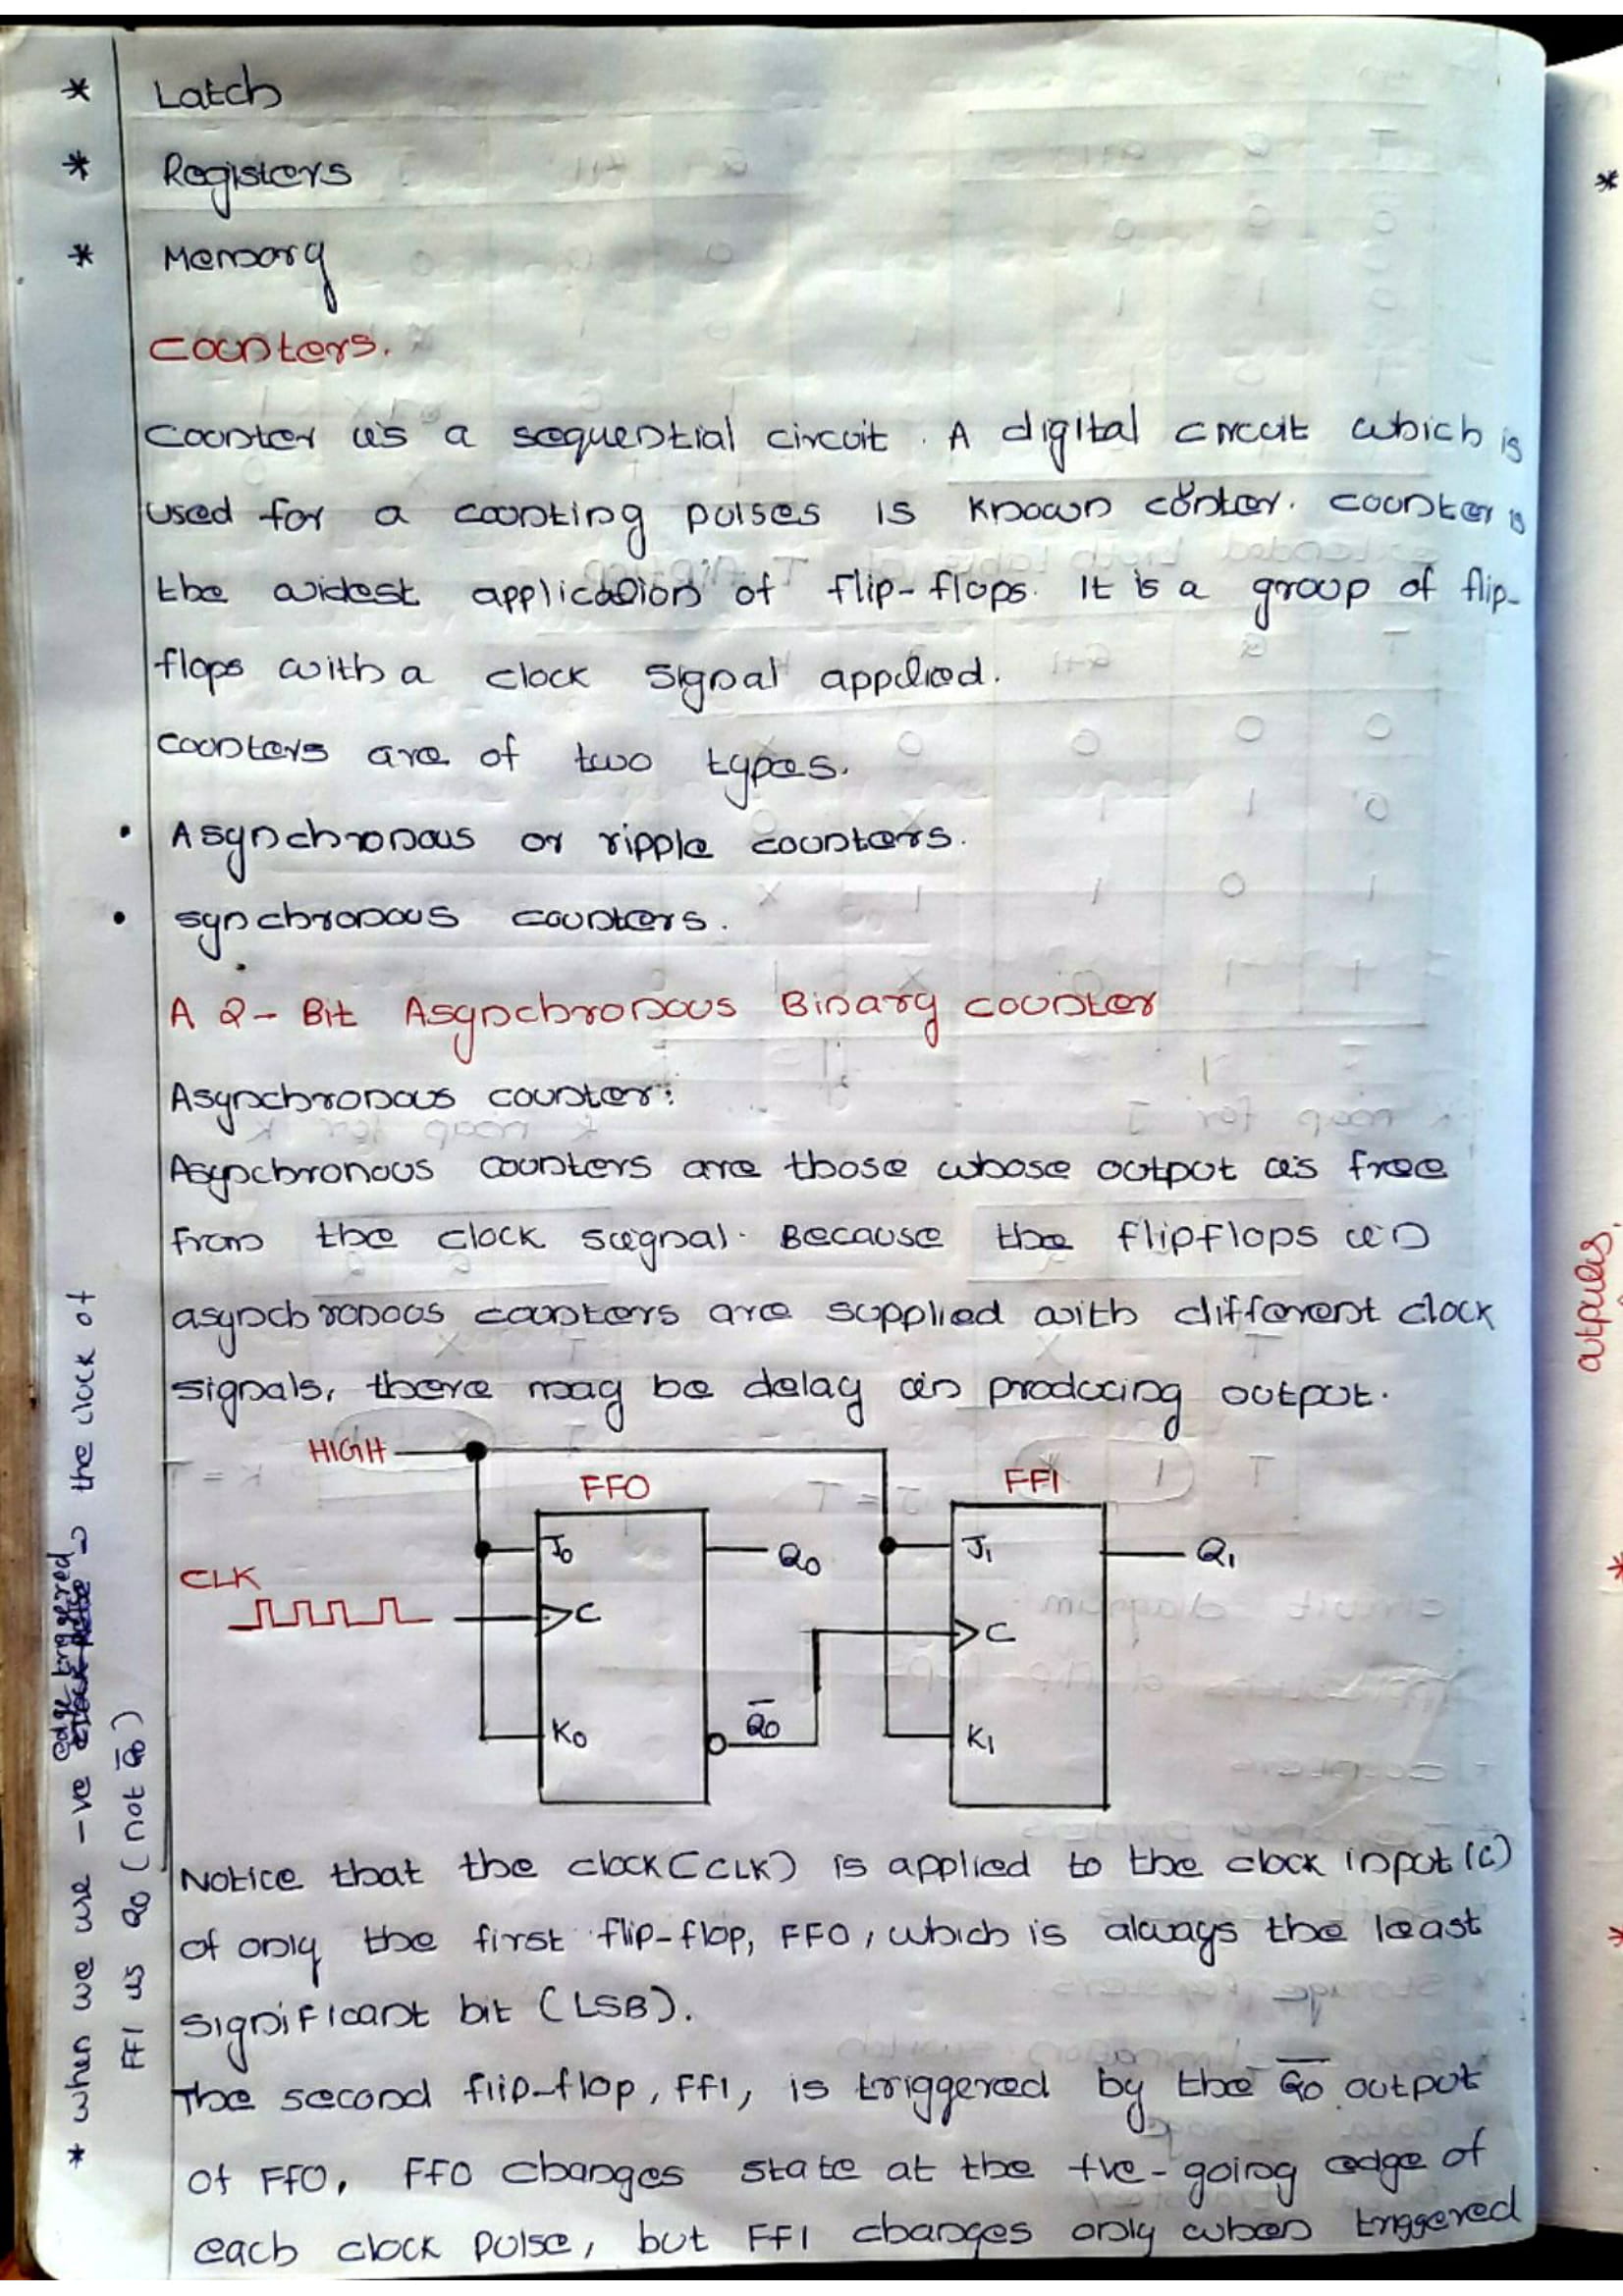 * Latch
* Registers
* Memory
Counters.
Counter is a sequential circuit. A digital circuit which is
used for a counting pulses is known conter. counter is
the widest application of flip-flops. It is a group of flip-
flops with a clock signal applied.
counters are of two types.
• Asynchronous or ripple counters.
• synchronous counters.
A 2-Bit Asynchronous Binary counter
Asynchronous counter:
Asynchronous counters are those whose output is free
from the clock signal. Because the flipflops in
asynchronous counters are supplied with different clock
signals, there may be delay in producing output.
HIGH
FF0
FF1
J0
Q0
J1
Q1
CLK
C
C
K0
Q̅0
K1
Notice that the clock (CLK) is applied to the clock input (C)
of only the first flip-flop, FF0, which is always the least
significant bit (LSB).
The second flip-flop, FF1, is triggered by the Q̅0 output
of FF0. FF0 changes state at the +ve-going edge of
each clock pulse, but FF1 changes only when triggered
* when we use -ve edge triggered → the clock of
FF1 is Q0 (not Q̅0)
*
outputs.
*
*